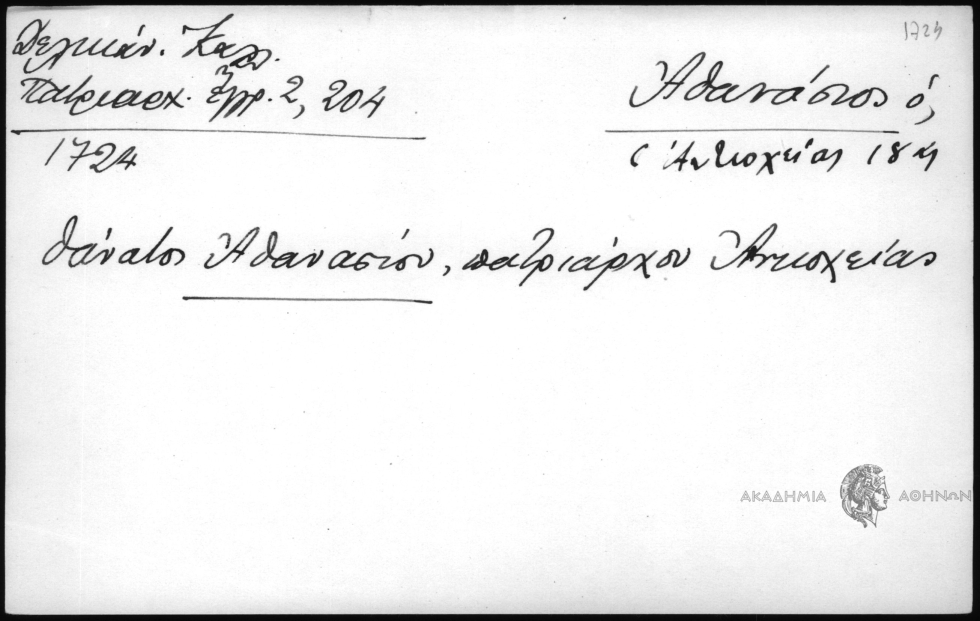 1724
Δελικάν. Καλ.
Πατριαρχ. Ἔγγρ. 2, 204
Ἀθανάσιος ὁ,
1724
Ἀντιοχείας
θάνατος Ἀθανασίου, πατριάρχου Ἀντιοχείας
ΑΚΑΔΗΜΙΑ ΑΘΗΝΩΝ